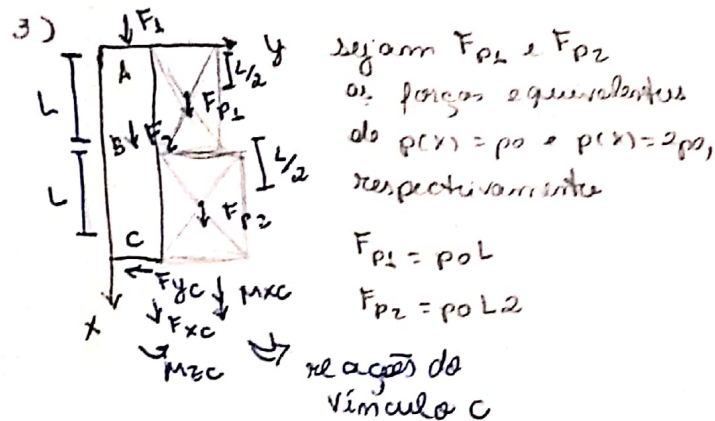 3)
F1
y
A
L/2
L
Fp1
B
F2
L/2
L
Fp2
C
Fyc
Mxc
x
Fxc
Mzc
reações do
vínculo C
sejam Fp1 e Fp2
as forças equivalentes
do p(x) = p0 e p(x) = 2p0,
respectivamente
Fp1 = p0L
Fp2 = p0L2